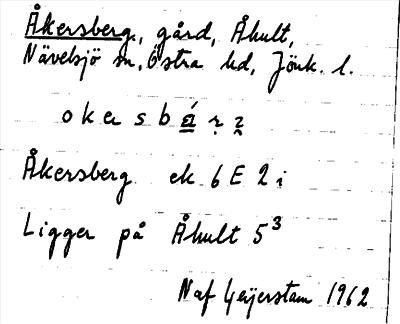 Åkersberg, gård, Åhult,
Nävelsjö sn, Östra hd, Jönk. l.
okasbǽṛẓ
Åkersberg ek 6E 2i
Ligger på Åhult 5³
Naf Geijerstam 1962